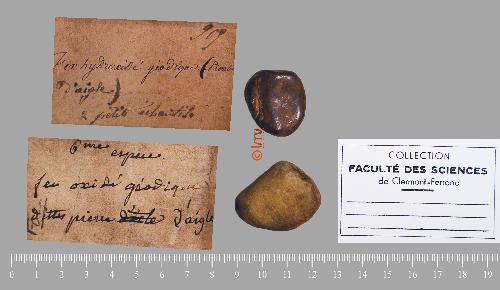 Fer hydroxidé géodique (
d'aigle)
2 petits échantill.
6me espece.
fer oxidé géodique
dittes pierre d'aigle
COLLECTION
FACULTÉ DES SCIENCES
de Clermont-Ferrand
0 1 2 3 4 5 6 7 8 9 10 11 12 13 14 15 16 17 18 19